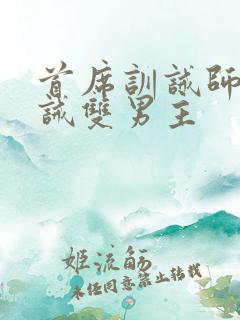 首席訓誡師
誡雙男主
姬流觴
未经同意禁止转载